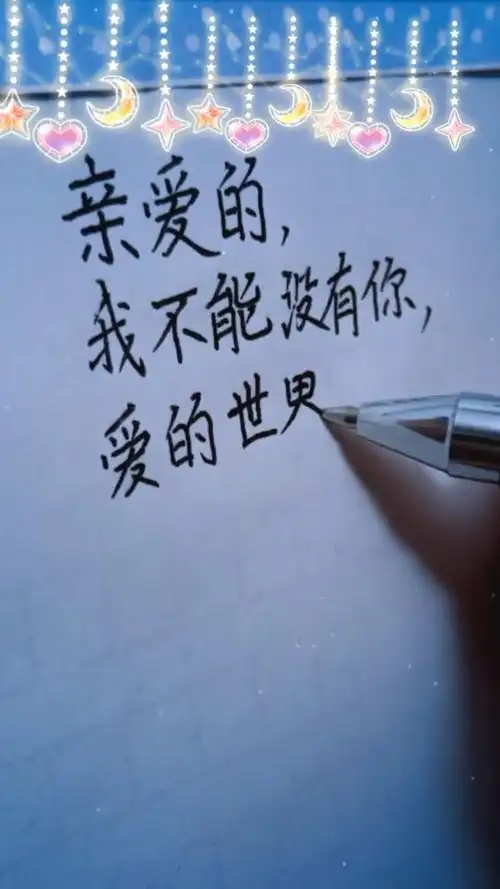 亲爱的,
我不能没有你,
爱的世界